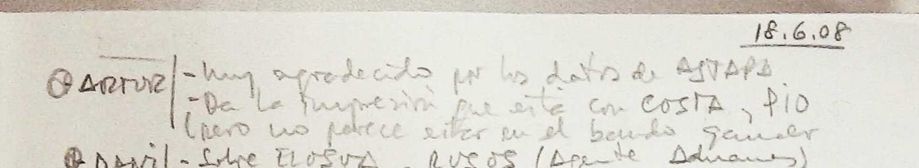 18.6.08
⊕ ARTUR | - Muy agradecido por los datos de ASTAPA
- Da la impresión que está con COSTA, PIO
(pero no parece estar en el bando ganador
⊕ DANI | - Sobre ELOSUA RUSOS (Agente Aduanas)